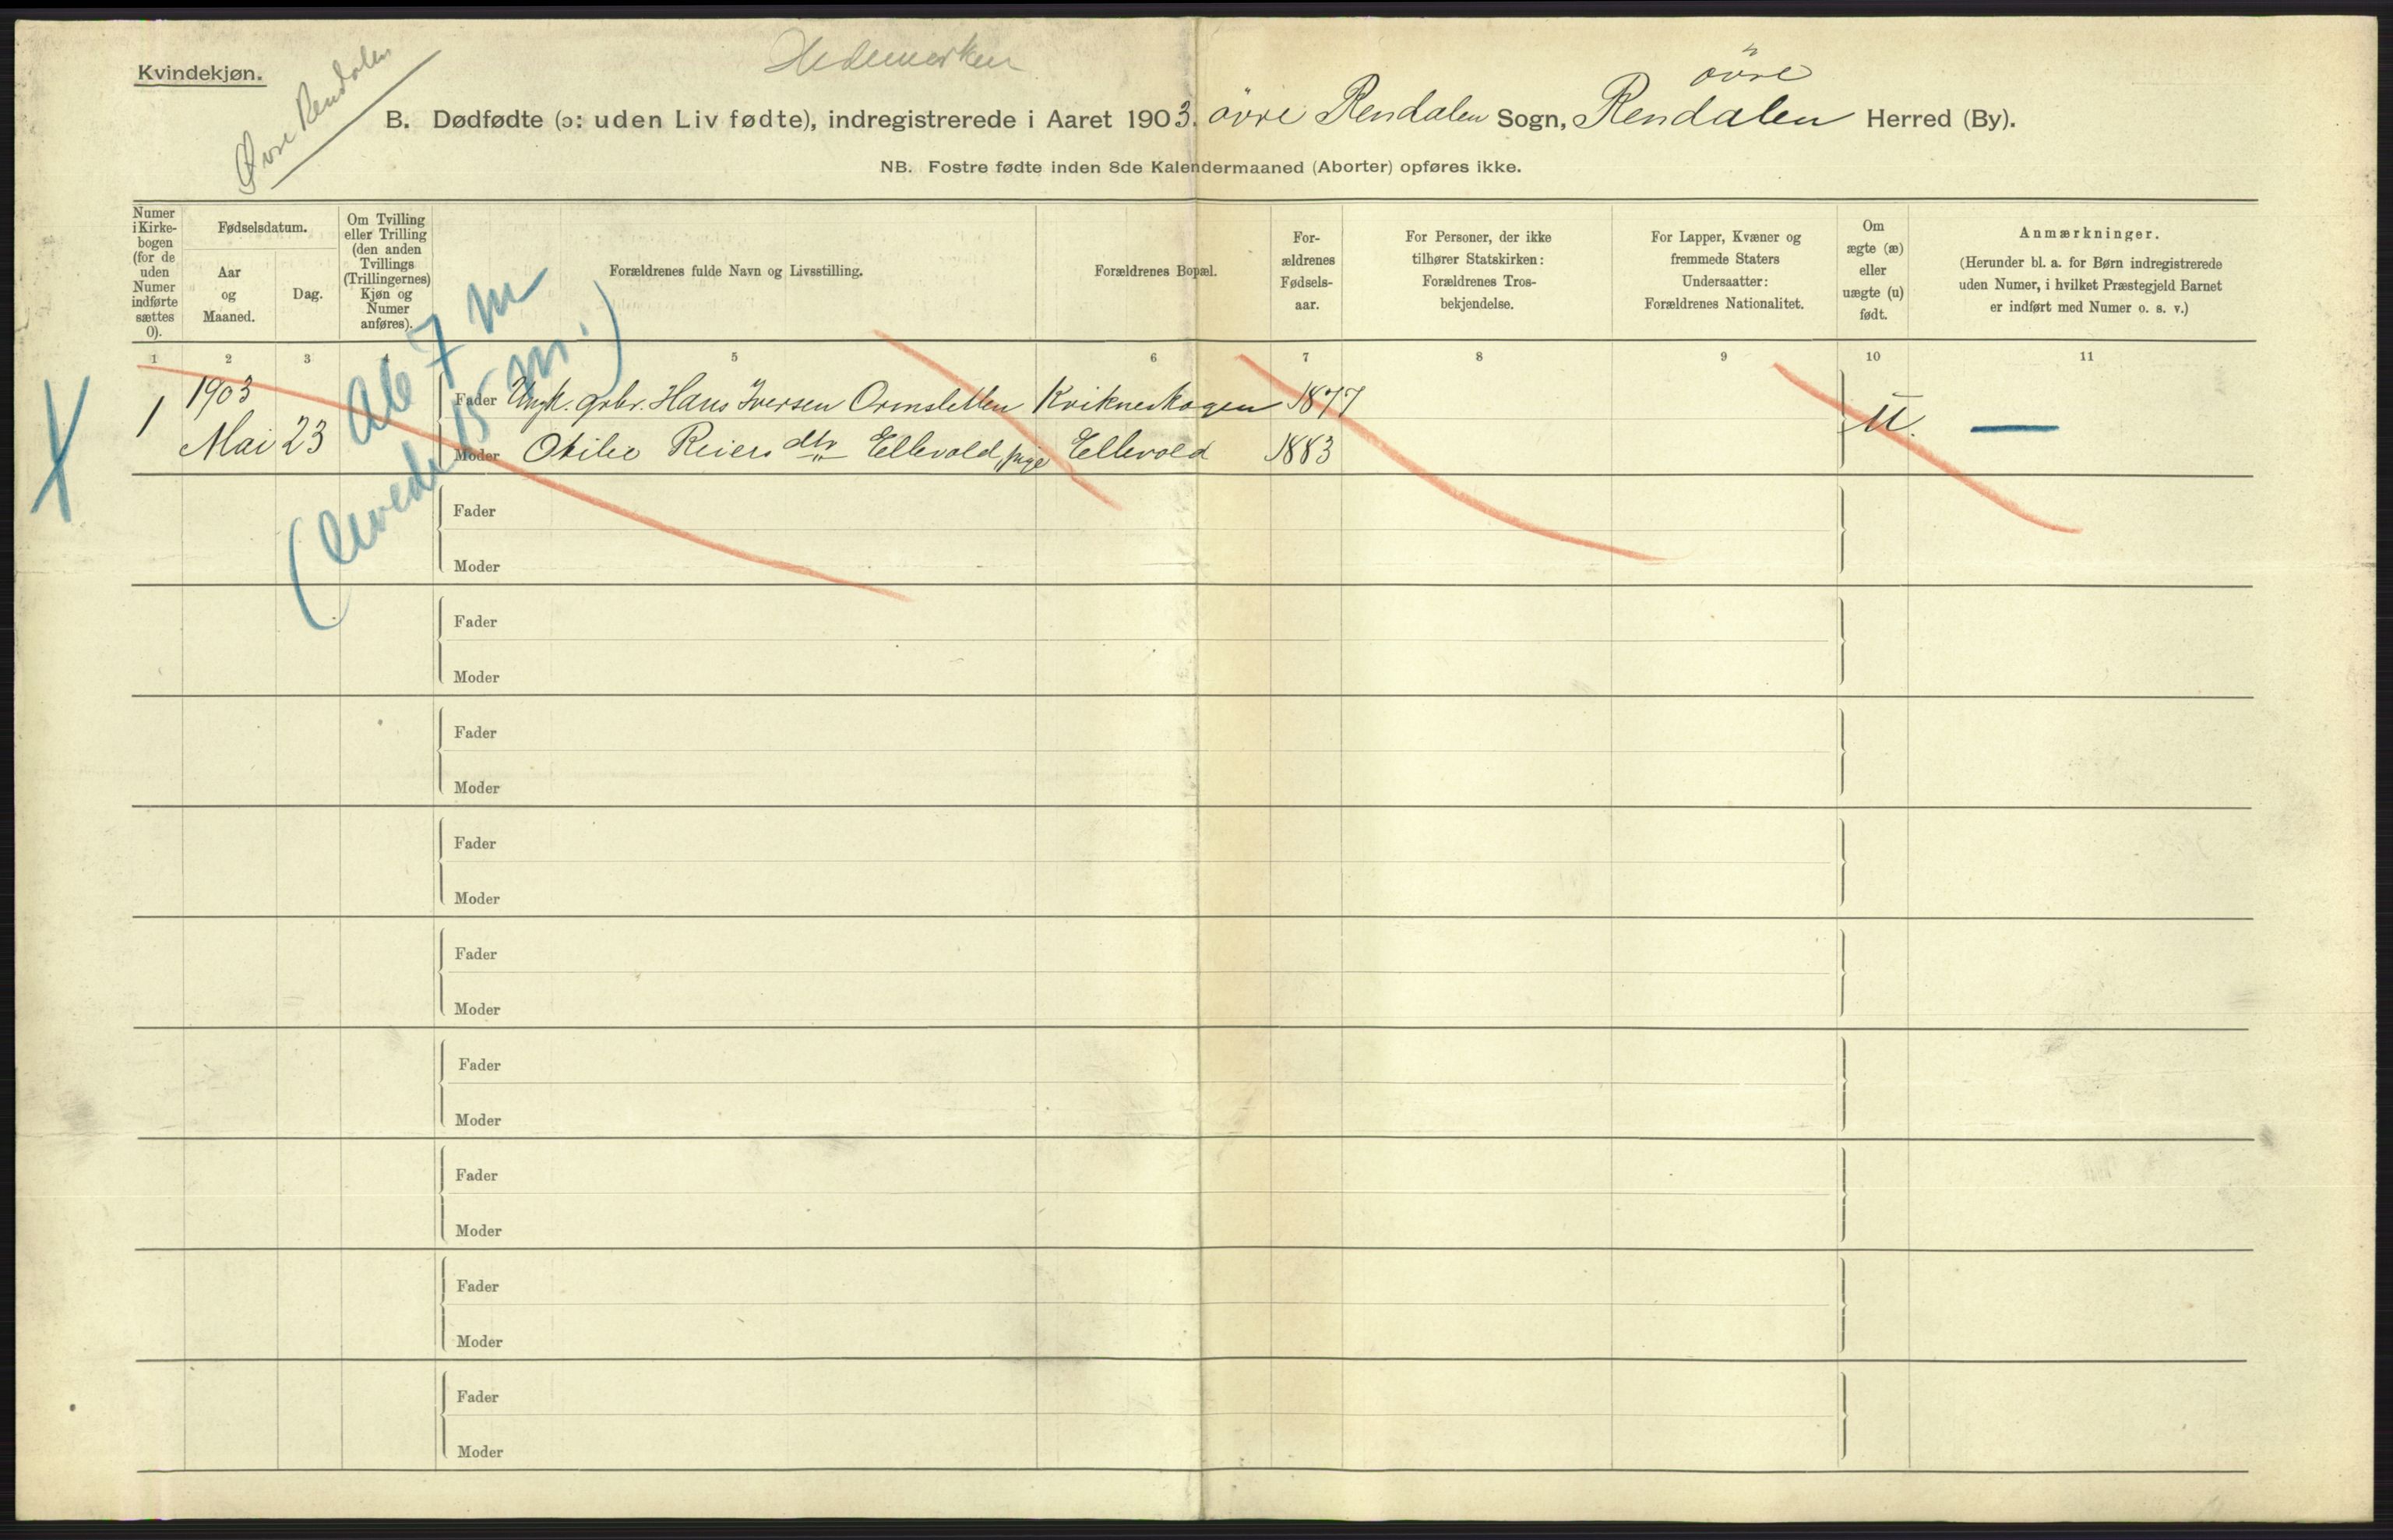 Kvindekjøn.
Øvre Rendalen
Hedemarken
øvre
B. Dødfødte (ɔ: uden Liv fødte), indregistrerede i Aaret 1903. øvre Rendalen Sogn, Rendalen Herred (By).
NB. Fostre fødte inden 8de Kalendermaaned (Aborter) opføres ikke.
Numer i Kirke- bogen (for de uden Numer indførte sættes 0).
Fødselsdatum.
Aar og Maaned.
Dag.
Om Tvilling eller Trilling (den anden Tvillings (Trillingernes) Kjøn og Numer anføres).
Forældrenes fulde Navn og Livsstilling.
Forældrenes Bopæl.
For- ældrenes Fødsels- aar.
For Personer, der ikke tilhører Statskirken: Forældrenes Tros- bekjendelse.
For Lapper, Kvæner og fremmede Staters Undersaatter: Forældrenes Nationalitet.
Om ægte (æ) eller uægte (u) født.
Anmærkninger.
(Herunder bl. a. for Børn indregistrerede uden Numer, i hvilket Præstegjeld Barnet er indført med Numer o. s. v.)
1 2 3 4 5 6 7 8 9 10 11
Ab 7 m
15 m.)
1 1903 Fader Ungk. grbr. Hans Iversen Ormsletten Kvikneskogen 1877 U.
Mai 23 Moder Otilie Reiersdtr Ellevold, pige Ellevold 1883
Fader
Moder
Fader
Moder
Fader
Moder
Fader
Moder
Fader
Moder
Fader
Moder
Fader
Moder
Fader
Moder
Fader
Moder